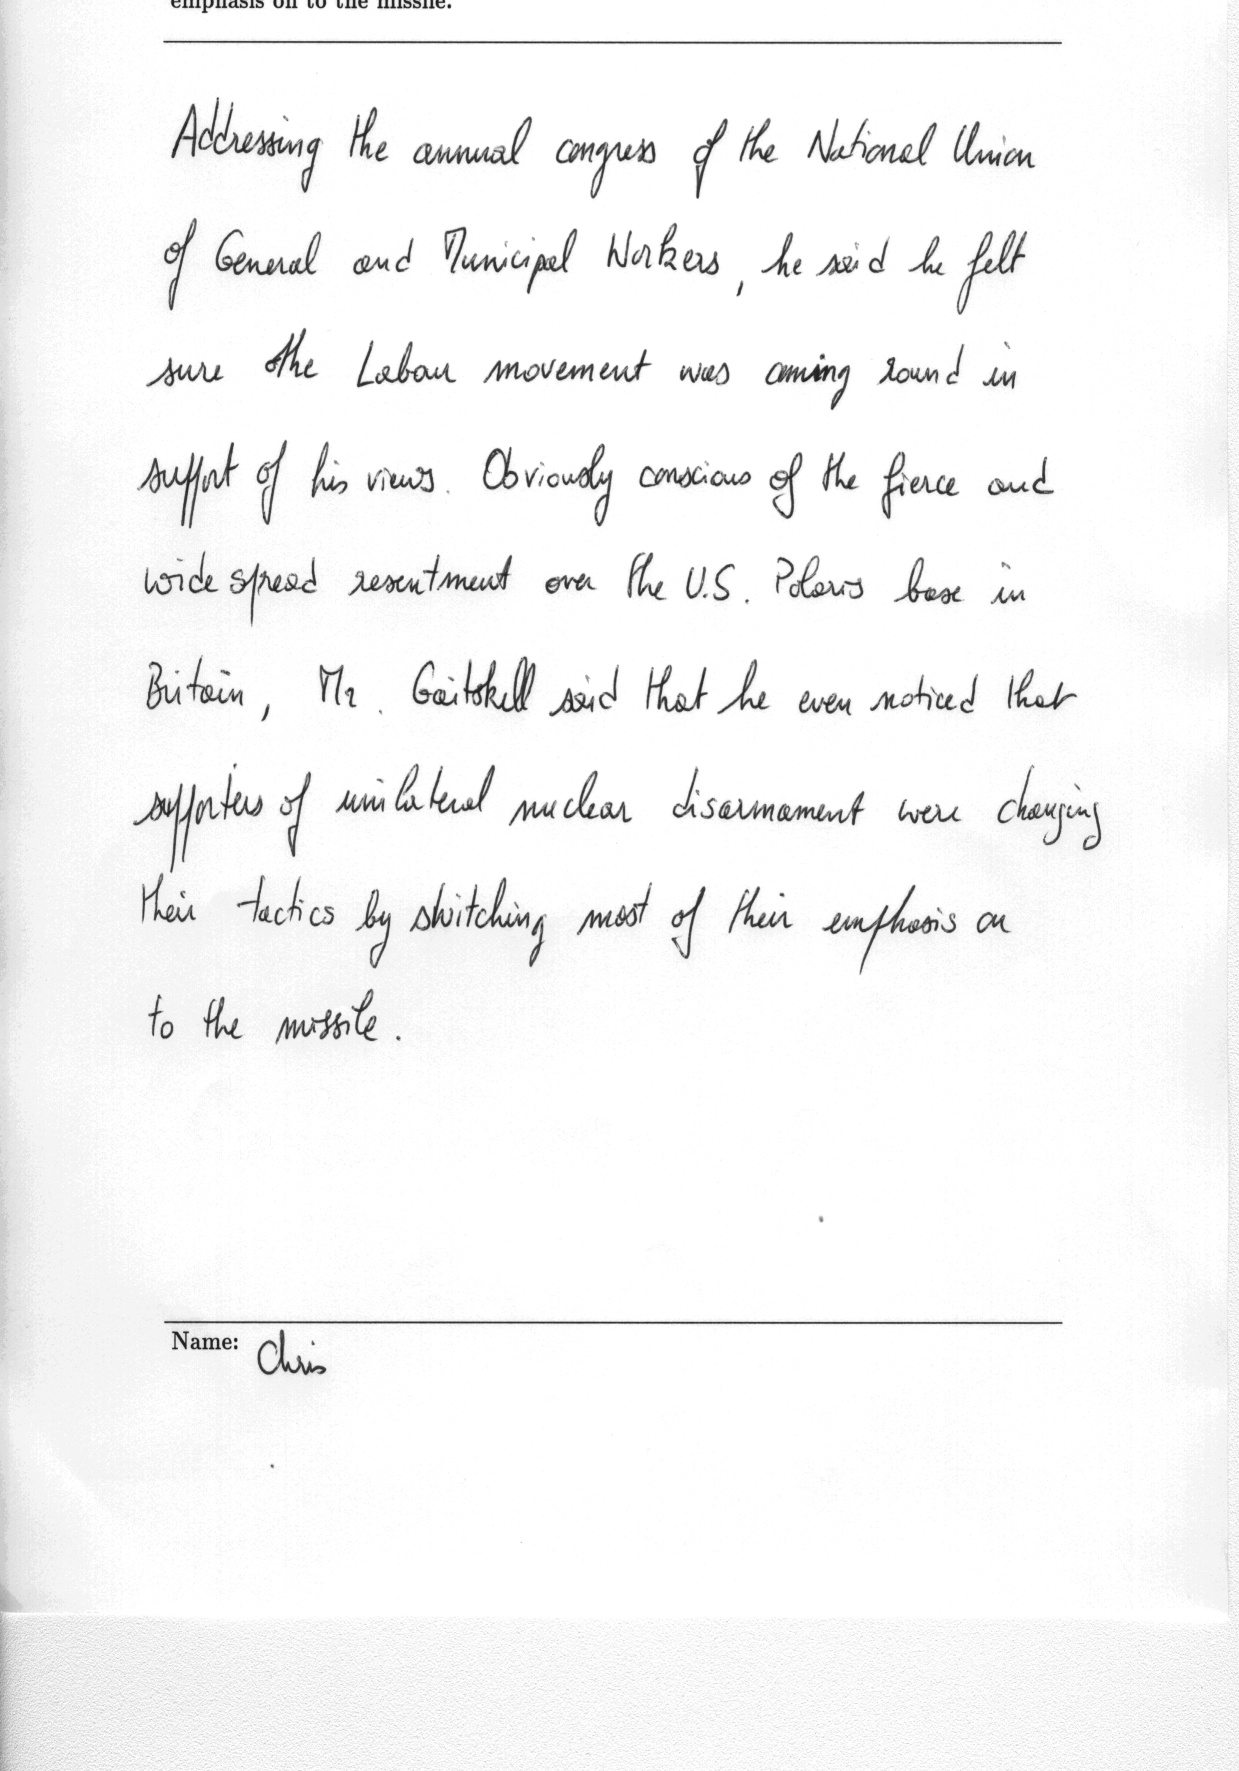 emphasis on to the missile.
Addressing the annual congress of the National Union
of General and Municipal Workers, he said he felt
sure the Labour movement was coming round in
support of his views. Obviously conscious of the fierce and
widespread resentment over the U.S. Polaris base in
Britain, Mr. Gaitskell said that he even noticed that
supporters of unilateral nuclear disarmament were changing
their tactics by switching most of their emphasis on
to the missile.
Name: Chris